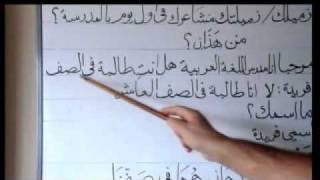 زميلك / زميلتك مشاعرك في أول يوم بالمدرسة؟
من هذان؟
مرحبا انا مدرس اللغة العربية هل انت طالبة في الصف
فريدة: لا انا طالبة في الصف العاشر
ما اسمك؟
اسمي فريدة
في صفنا